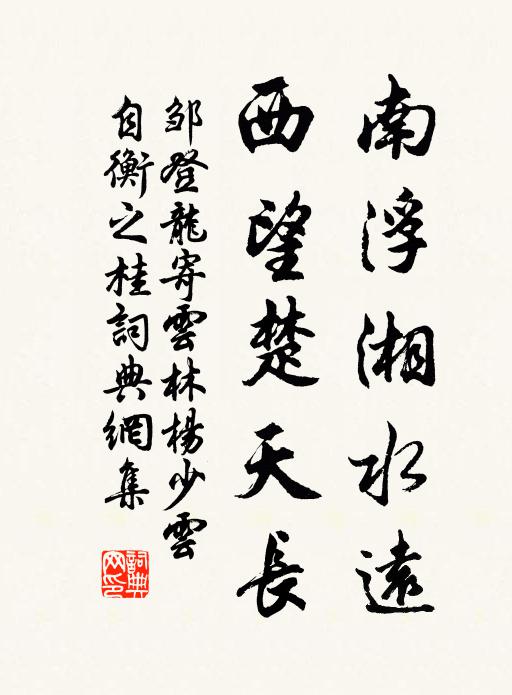 南浮湘水遠
西望楚天長
邹登龍寄雲林楊少雲
自衡之桂詞典網集
詞典
网印